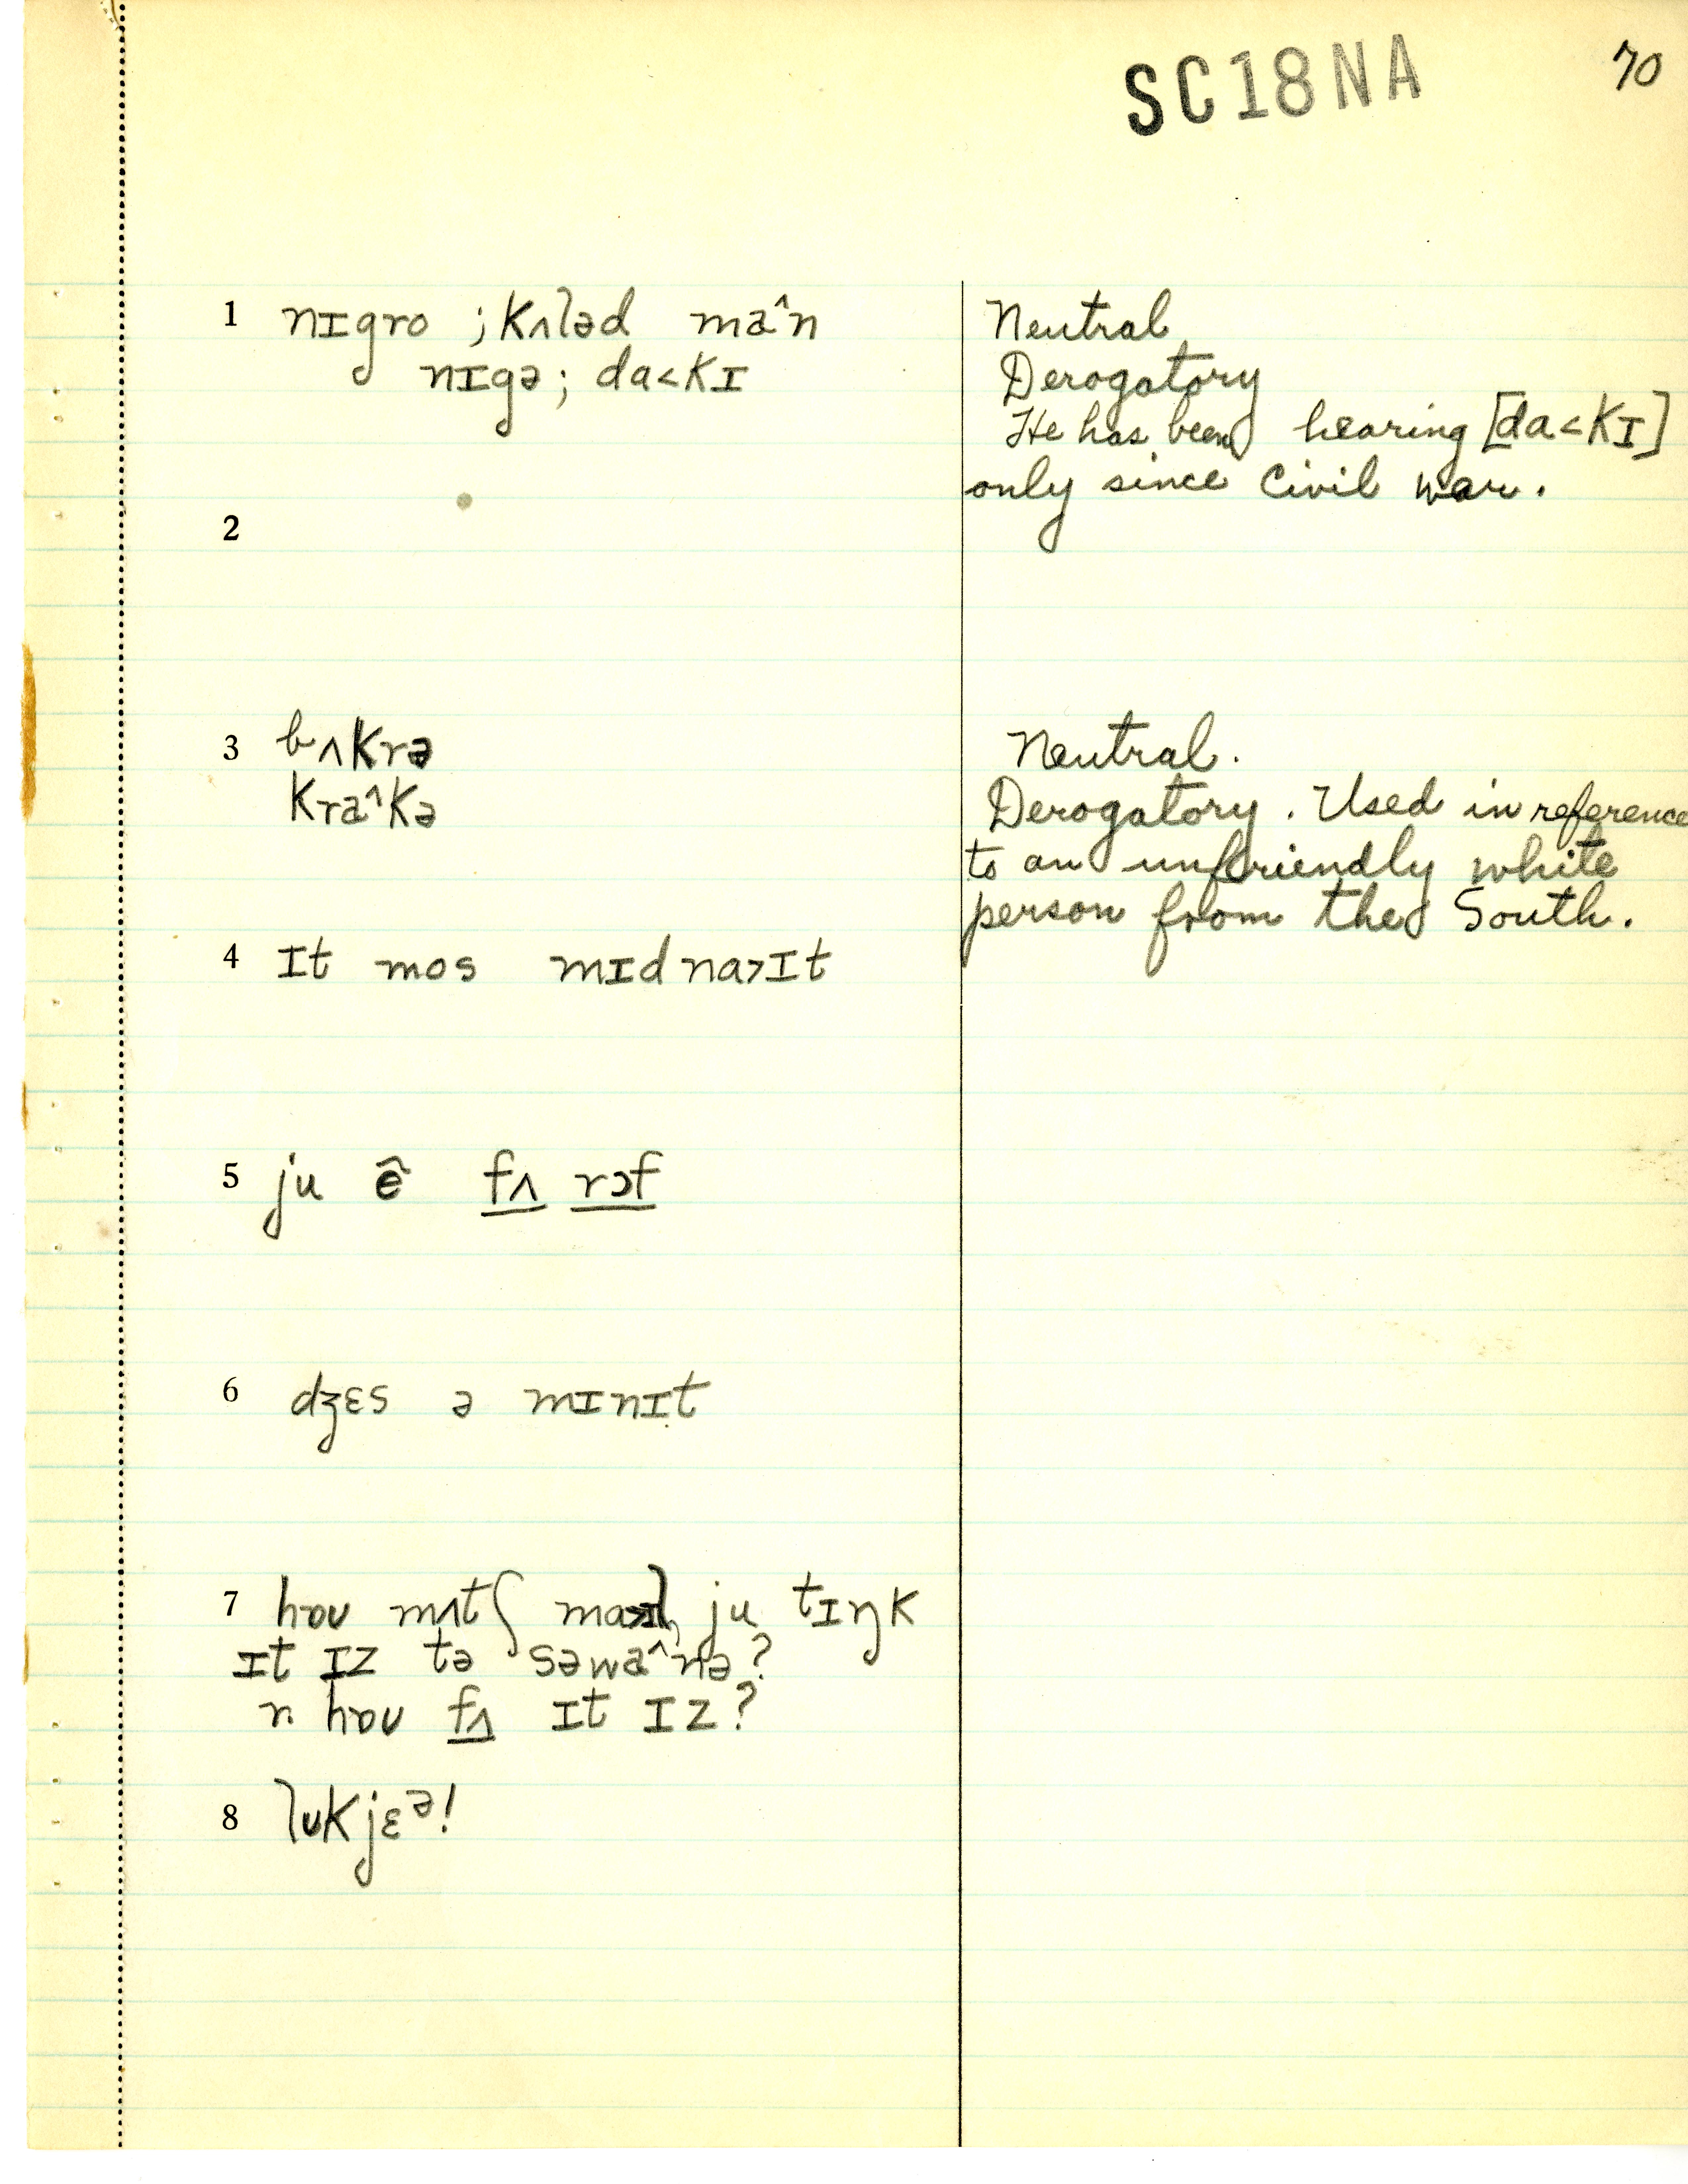 SC18NA 70
1 nɪgro ; kʌləd ma^n Neutral
nɪgə ; da<kɪ Derogatory
He has been hearing [da<kɪ]
only since Civil war.
2
3 bʌkrə Neutral.
kra^kə Derogatory. Used in reference
to an unfriendly white
person from the South.
4 ɪt mos mɪdna>ɪt
5 ju ê fʌ rɔf
6 dʒɛs ə mɪnɪt
7 hɒu mʌtʃ ma>ɪl ju tɪŋk
ɪt ɪz tə səwa^nə?
n hɒu fʌ ɪt ɪz?
8 lʊkjɛə!